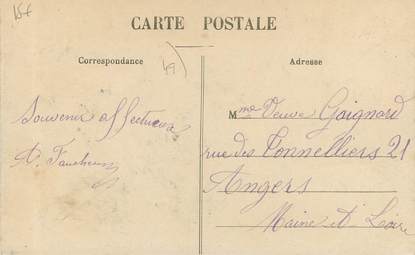 15f
CARTE POSTALE
Correspondance
49
Adresse
Souvenir affectueux
Mme Veuve Goignard
rue des Tonnelliers 21
Angers
Maine et Loire